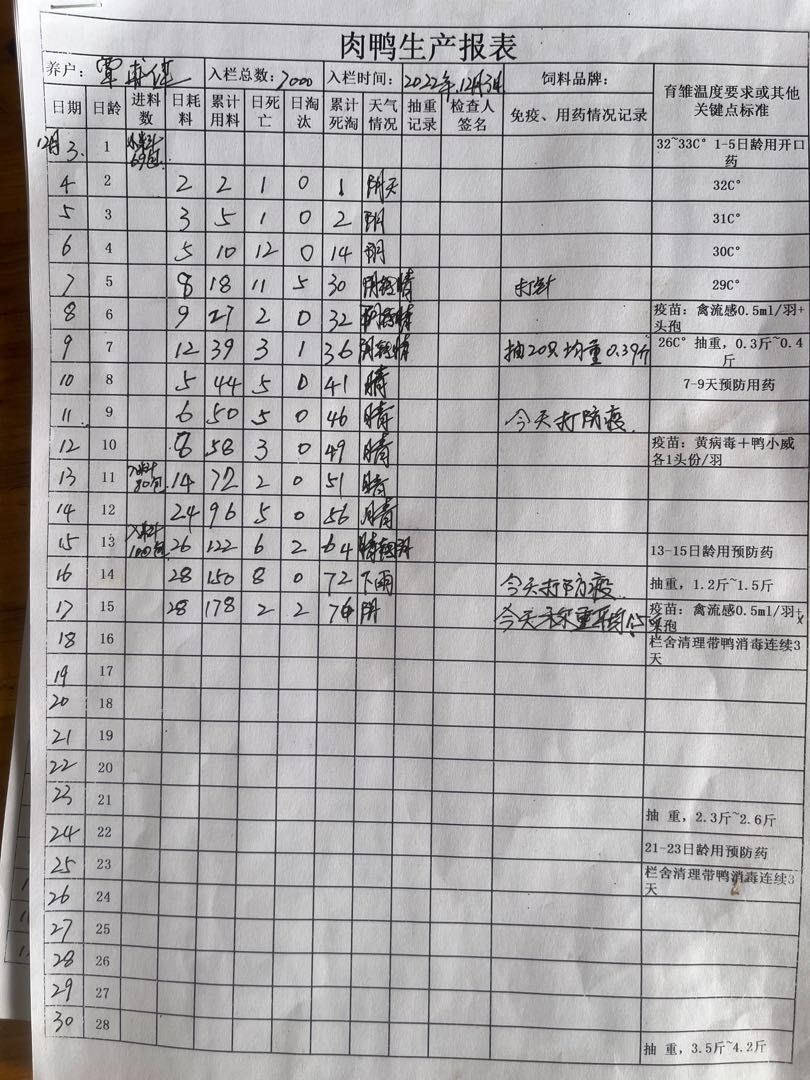 肉鸭生产报表
养户： 覃 入栏总数：7000 入栏时间：2022年.12月3日 饲料品牌： 育雏温度要求或其他关键点标准
日期 日龄 进料数 日耗料 累计用料 日死亡 日淘汰 累计死淘 天气情况 抽重记录 检查人签名 免疫、用药情况记录
12月3. 1 69包 32~33C° 1-5日龄用开口药
4 2 2 2 1 0 1 阴天 32C°
5 3 3 5 1 0 2 阴 31C°
6 4 5 10 12 0 14 阴 30C°
7 5 8 18 11 5 30 阴转晴 打针 29C°
8 6 9 27 2 0 32 阴转晴 疫苗：禽流感0.5ml/羽+头孢
9 7 12 39 3 1 36 阴转晴 抽20只均重0.39斤 26C° 抽重，0.3斤~0.4斤
10 8 5 44 5 0 41 晴 7-9天预防用药
11. 9 6 50 5 0 46 晴 今天打防疫.
12 10 8 58 3 0 49 晴 疫苗：黄病毒＋鸭小威各1头份/羽
13 11 80包 14 72 2 0 51 晴
14 12 24 96 5 0 56 晴
15 13 100包 26 122 6 2 64 晴转阴 13-15日龄用预防药
16 14 28 150 8 0 72 下雨 今天打防疫. 抽重，1.2斤~1.5斤
17 15 28 178 2 2 76 阴 今天称重平均 疫苗：禽流感0.5ml/羽+头孢
18 16 栏舍清理带鸭消毒连续3天
19 17
20 18
21 19
22 20
23 21 抽 重，2.3斤~2.6斤
24 22 21-23日龄用预防药
25 23 栏舍清理带鸭消毒连续3天
26 24
27 25
28 26
29 27
30 28 抽 重，3.5斤~4.2斤